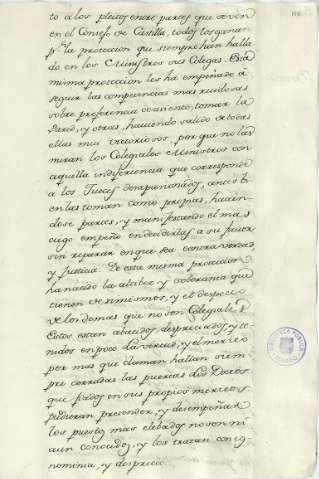 to a los pleitos entre partes que se ven
en el Consejo de Castilla, todos los ganan
pr. la proteccion que siempre han halla
do en los Ministros sus Colegas. Esta
misma proteccion les ha empeñado à
seguir las competencias mas ruidosas
sobre preferencia de asiento, tomar la
Pared, y otras, haviendo salido de todas
ellas muy victoriosos, por que no las
miran los Colegiales Ministros con
aquella indiferencia que corresponde
a los Jueces desapasionados, antes bi
en las toman como propias, hacien
dose partes, y manifestando el mas
ciego empeño en decidirlas a su favor
sin reparar en que sea contra verdad
y Justicia. De esta misma proteccion
ha nacido la altivez y soberania que
tienen de si mismos, y el desprecio
de los demas que no son Colegiales.
Estos estan abatidos, despreciados, y te
nidos en poco. La virtud, y el merito
por mas que claman hallan siem
pre cerradas las puertas. Los Doctos
que fiados en sus propios meritos
pudieran pretender, y desempeñar
los puestos mas elebados no son ni
aun conocidos, y los tratan con ig
nominia, y desprecio